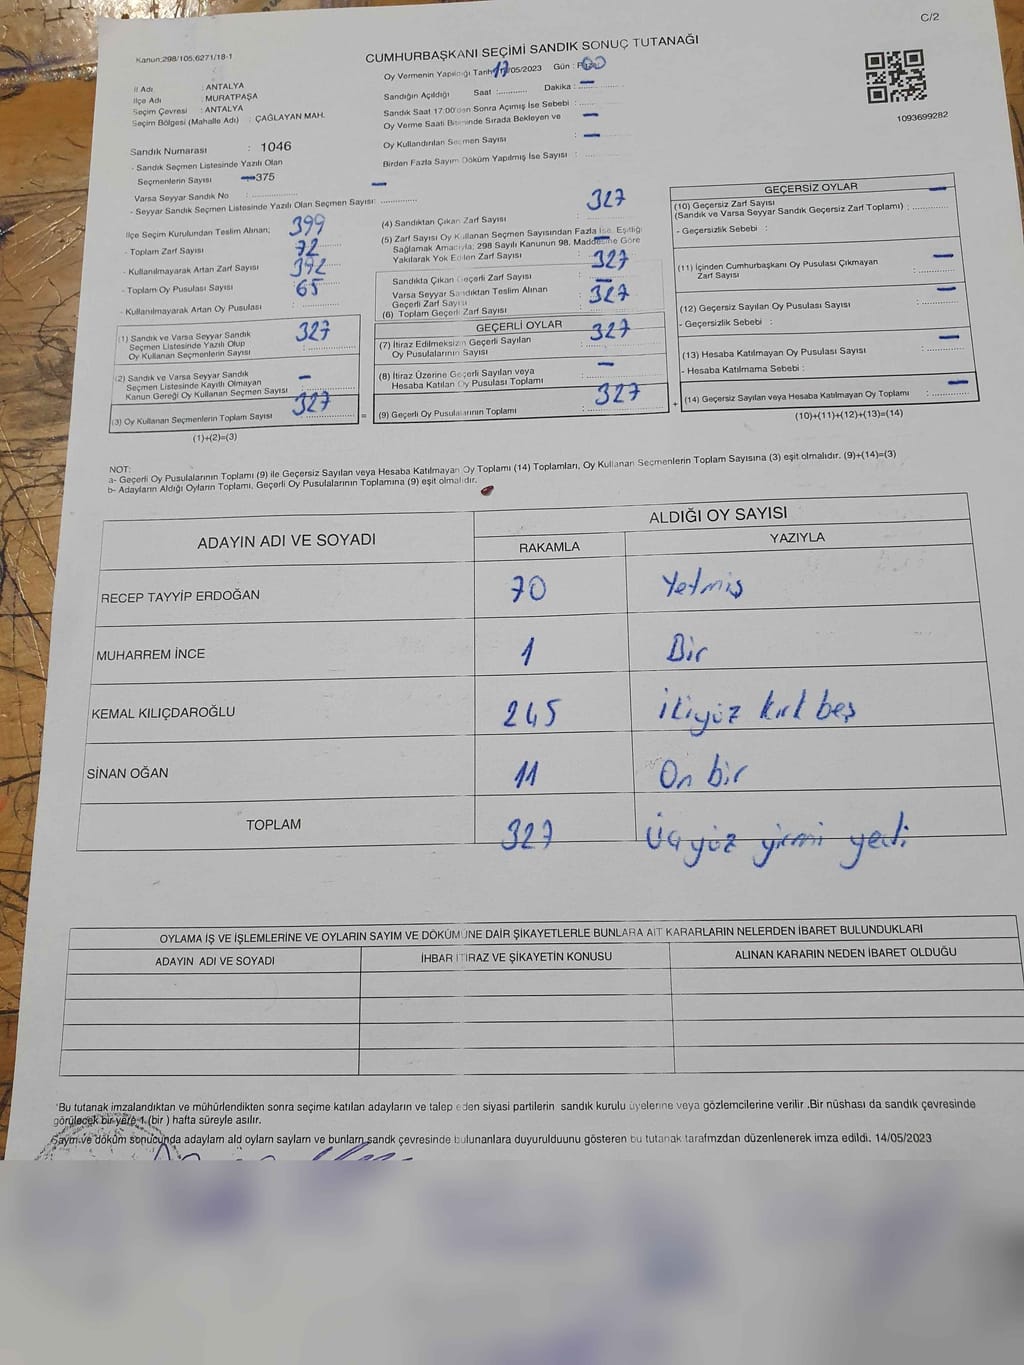 C/2
Kanun:298/105,6271/18-1
CUMHURBAŞKANI SEÇİMİ SANDIK SONUÇ TUTANAĞI
İl Adı : ANTALYA
İlçe Adı : MURATPAŞA
Seçim Çevresi : ANTALYA
Seçim Bölgesi (Mahalle Adı) : ÇAĞLAYAN MAH.
Oy Vermenin Yapıldığı Tarih /05/2023 Gün :
Sandığın Açıldığı Saat :........... Dakika : —
Sandık Saat 17:00'den Sonra Açımış İse Sebebi : —
Oy Verme Saati Bitiminde Sırada Bekleyen ve
Oy Kullandırılan Seçmen Sayısı : —
Birden Fazla Sayım Döküm Yapılmış İse Sayısı : ...........
1093699282
Sandık Numarası : 1046
- Sandık Seçmen Listesinde Yazılı Olan
Seçmenlerin Sayısı 375
Varsa Seyyar Sandık No : ............
- Seyyar Sandık Seçmen Listesinde Yazılı Olan Seçmen Sayısı: —
İlçe Seçim Kurulundan Teslim Alınan;
- Toplam Zarf Sayısı : 399
- Kullanılmayarak Artan Zarf Sayısı : 72
- Toplam Oy Pusulası Sayısı : 392
- Kullanılmayarak Artan Oy Pusulası : 65
(1) Sandık ve Varsa Seyyar Sandık
Seçmen Listesinde Yazılı Olup
Oy Kullanan Seçmenlerin Sayısı : 327
(2) Sandık ve Varsa Seyyar Sandık
Seçmen Listesinde Kayıtlı Olmayan
Kanun Gereği Oy Kullanan Seçmen Sayısı : —
(3) Oy Kullanan Seçmenlerin Toplam Sayısı : 327
(1)+(2)=(3)
=
(4) Sandıktan Çıkan Zarf Sayısı : 327
(5) Zarf Sayısı Oy Kullanan Seçmen Sayısından Fazla İse, Eşitliği
Sağlamak Amacıyla; 298 Sayılı Kanunun 98. Maddesine Göre
Yakılarak Yok Edilen Zarf Sayısı : —
Sandıkta Çıkan Geçerli Zarf Sayısı : 327
Varsa Seyyar Sandıktan Teslim Alınan
Geçerli Zarf Sayısı : —
(6) Toplam Geçerli Zarf Sayısı : 327
GEÇERLİ OYLAR
(7) İtiraz Edilmeksizin Geçerli Sayılan
Oy Pusulalarının Sayısı : 327
(8) İtiraz Üzerine Geçerli Sayılan veya
Hesaba Katılan Oy Pusulası Toplamı : —
(9) Geçerli Oy Pusulalarının Toplamı : 327
+
GEÇERSİZ OYLAR
(10) Geçersiz Zarf Sayısı
(Sandık ve Varsa Seyyar Sandık Geçersiz Zarf Toplamı) : —
- Geçersizlik Sebebi :
(11) İçinden Cumhurbaşkanı Oy Pusulası Çıkmayan
Zarf Sayısı : —
(12) Geçersiz Sayılan Oy Pusulası Sayısı : —
- Geçersizlik Sebebi :
(13) Hesaba Katılmayan Oy Pusulası Sayısı : —
- Hesaba Katılmama Sebebi :
(14) Geçersiz Sayılan veya Hesaba Katılmayan Oy Toplamı : —
(10)+(11)+(12)+(13)=(14)
NOT:
a- Geçerli Oy Pusulalarının Toplamı (9) ile Geçersiz Sayılan veya Hesaba Katılmayan Oy Toplamı (14) Toplamları, Oy Kullanan Seçmenlerin Toplam Sayısına (3) eşit olmalıdır. (9)+(14)=(3)
b- Adayların Aldığı Oyların Toplamı, Geçerli Oy Pusulalarının Toplamına (9) eşit olmalıdır.
ADAYIN ADI VE SOYADI
ALDIĞI OY SAYISI
RAKAMLA YAZIYLA
RECEP TAYYİP ERDOĞAN 70 Yetmiş
MUHARREM İNCE 1 Bir
KEMAL KILIÇDAROĞLU 245 İkiyüz kırk beş
SİNAN OĞAN 11 On bir
TOPLAM 327 Üçyüz yirmi yedi
OYLAMA İŞ VE İŞLEMLERİNE VE OYLARIN SAYIM VE DÖKÜMÜNE DAİR ŞİKAYETLERLE BUNLARA AİT KARARLARIN NELERDEN İBARET BULUNDUKLARI
ADAYIN ADI VE SOYADI İHBAR İTİRAZ VE ŞİKAYETİN KONUSU ALINAN KARARIN NEDEN İBARET OLDUĞU
*Bu tutanak imzalandıktan ve mühürlendikten sonra seçime katılan adayların ve talep eden siyasi partilerin sandık kurulu üyelerine veya gözlemcilerine verilir .Bir nüshası da sandık çevresinde
görülecek bir yere 1 (bir ) hafta süreyle asılır.
Sayım ve döküm sonucunda adayların ald oyların sayların ve bunların sandk çevresinde bulunanlara duyurulduunu gösteren bu tutanak tarafmzdan düzenlenerek imza edildi. 14/05/2023